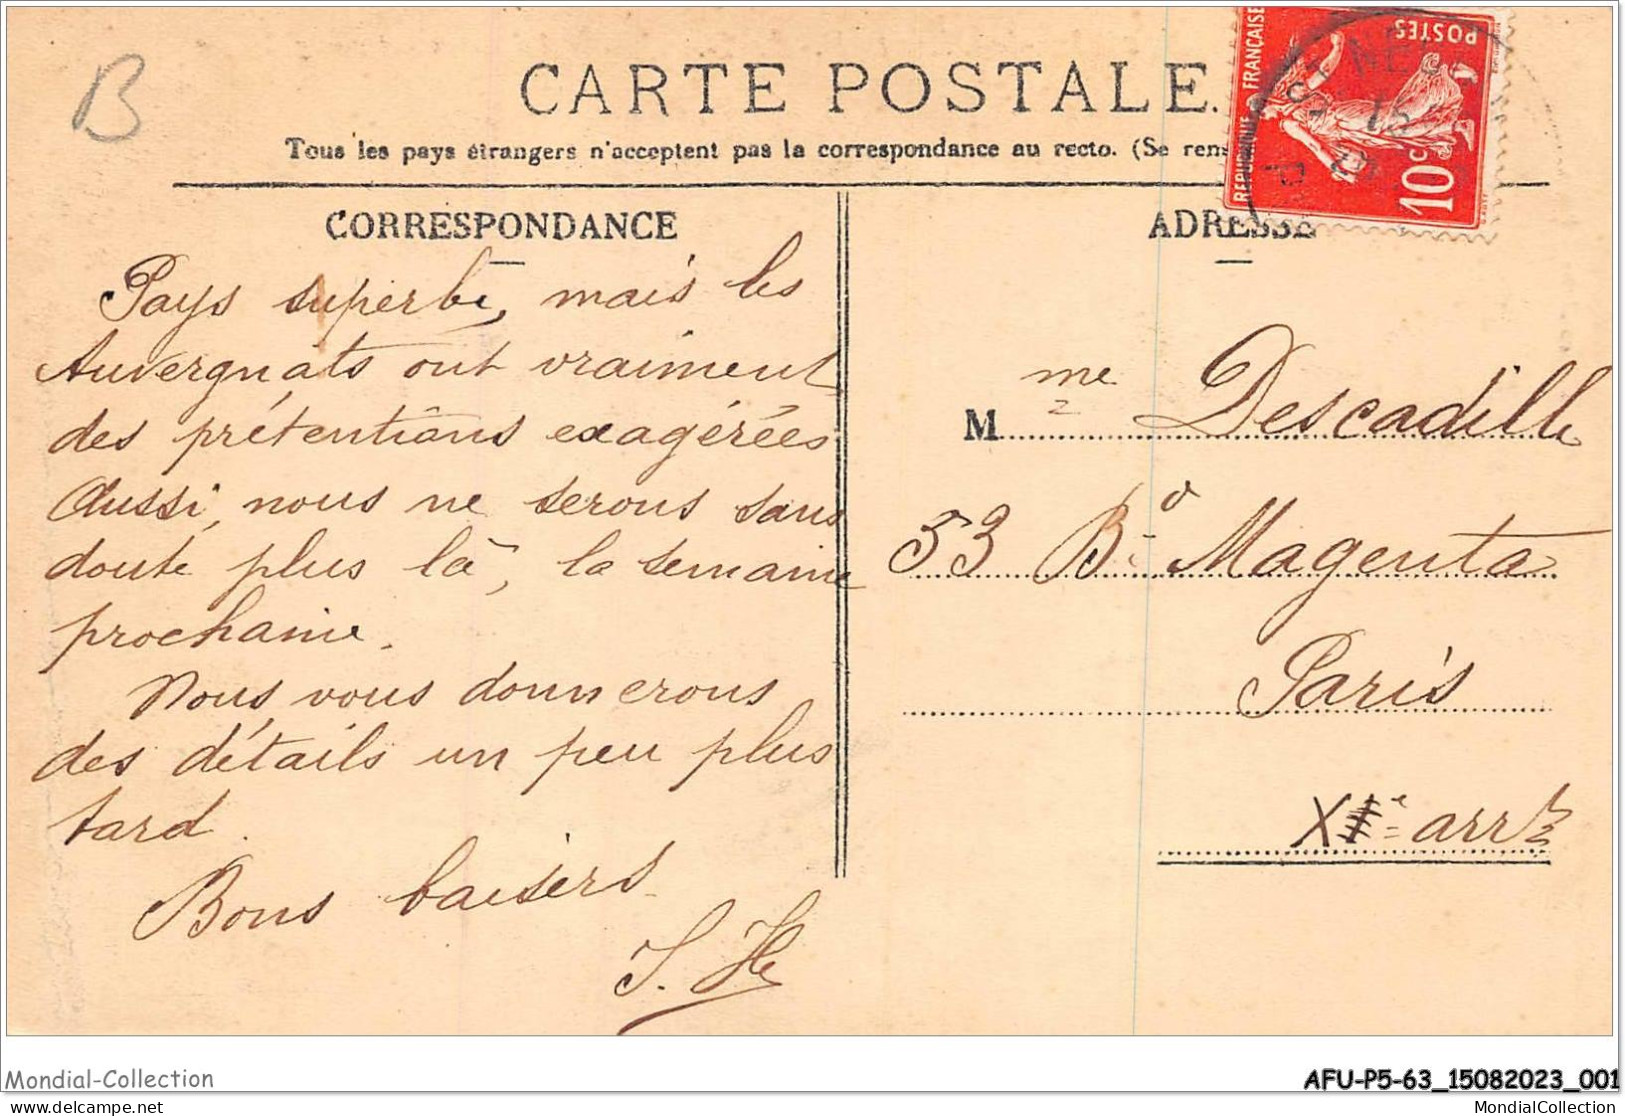 B
CARTE POSTALE.
Tous les pays étrangers n'acceptent pas la correspondance au recto. (Se rens
REPUBLIQUE FRANÇAISE
POSTES
10 c
CORRESPONDANCE
Pays superbe, mais les
Auvergnats ont vraiment
des prétentions exagérées
Aussi, nous ne serons sans
doute plus là, la semaine
prochaine.
Nous vous donnerons
des détails un peu plus
tard.
Bons baisers
ADRESSE
Mme Descadille
53 Bd Magenta
Paris
arrt
Mondial-Collection
AFU-P5-63_15082023_001
delcampe.net
MondialCollection